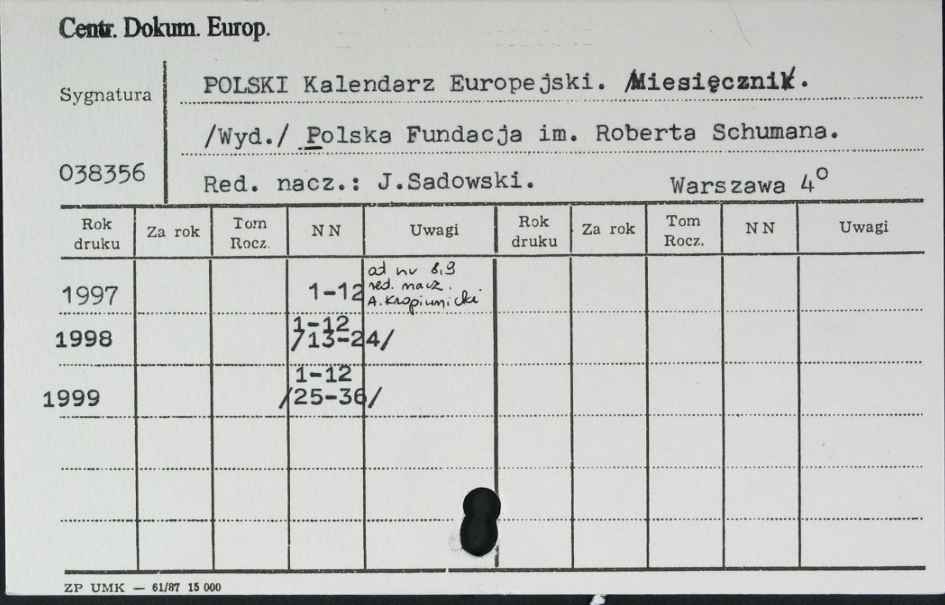 Centr. Dokum. Europ.
Sygnatura
038356
POLSKI Kalendarz Europejski. /Miesięcznik/.
/Wyd./ Polska Fundacja im. Roberta Schumana.
Red. nacz.: J.Sadowski. Warszawa 4°
Rok druku Za rok Tom Rocz. NN Uwagi Rok druku Za rok Tom Rocz. NN Uwagi
1997 1-12 od nr 8,9
red. nacz.
A.Kropiwnicki
1998 1-12
/13-24/
1999 1-12
/25-36/
ZP UMK — 61/87 15 000